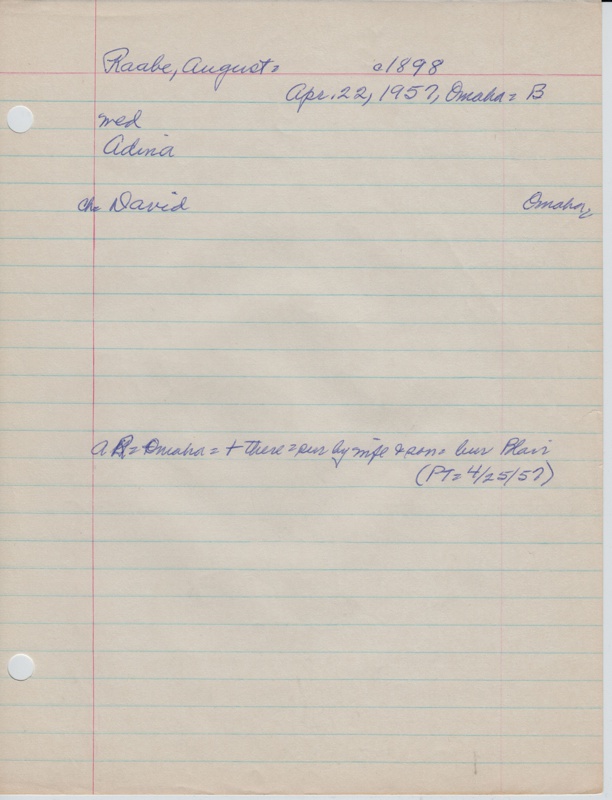 Raabe, August= c1898
Apr. 22, 1957, Omaha= B
med
Adina
ch= David Omaha,
A R= Omaha= + there= sur by wife & son= bur Plain
(PT= 4/25/57)